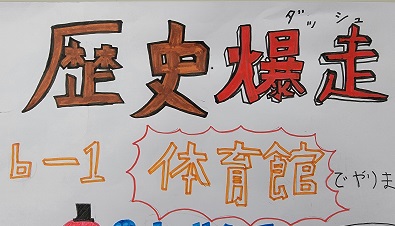 ダッシュ
歴史爆走
6-1 体育館でやりま